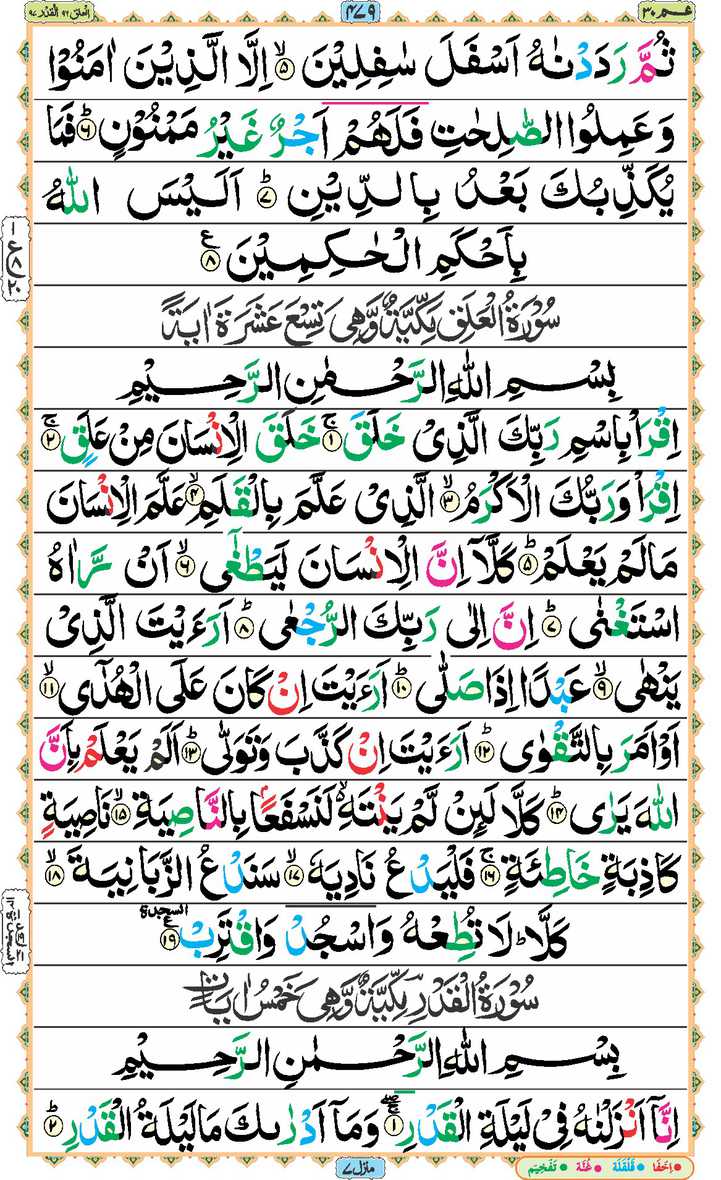 عـمـ ٣٠
٤٧٩
العلق ٩٦ القدر ٩٧
ثُمَّ رَدَدْنٰهُ اَسْفَلَ سٰفِلِيْنَ ۙ۝٥ اِلَّا الَّذِيْنَ اٰمَنُوْا
وَعَمِلُوا الصّٰلِحٰتِ فَلَهُمْ اَجْرٌ غَيْرُ مَمْنُوْنٍ ؕ۝٦ فَمَا
يُكَذِّبُكَ بَعْدُ بِالدِّيْنِ ؕ۝٧ اَلَيْسَ اللّٰهُ
بِاَحْكَمِ الْحٰكِمِيْنَ ۝٨ ع
سُوْرَةُ الْعَلَقِ مَكِّيَّةٌ وَّهِيَ تِسْعَ عَشَرَةَ اٰيَةً
بِسْمِ اللّٰهِ الرَّحْمٰنِ الرَّحِيْمِ
اِقْرَاْ بِاسْمِ رَبِّكَ الَّذِيْ خَلَقَ ۚ۝١ خَلَقَ الْاِنْسَانَ مِنْ عَلَقٍ ۚ۝٢
اِقْرَاْ وَرَبُّكَ الْاَكْرَمُ ۙ۝٣ الَّذِيْ عَلَّمَ بِالْقَلَمِ ۙ۝٤ عَلَّمَ الْاِنْسَانَ
مَا لَمْ يَعْلَمْ ؕ۝٥ كَلَّاۤ اِنَّ الْاِنْسَانَ لَيَطْغٰٓى ۙ۝٦ اَنْ رَّاٰهُ
اسْتَغْنٰى ؕ۝٧ اِنَّ اِلٰى رَبِّكَ الرُّجْعٰى ؕ۝٨ اَرَءَيْتَ الَّذِيْ
يَنْهٰى ۙ۝٩ عَبْدًا اِذَا صَلّٰى ؕ۝١٠ اَرَءَيْتَ اِنْ كَانَ عَلَى الْهُدٰٓى ۙ۝١١
اَوْ اَمَرَ بِالتَّقْوٰى ؕ۝١٢ اَرَءَيْتَ اِنْ كَذَّبَ وَتَوَلّٰى ؕ۝١٣ اَلَمْ يَعْلَمْ بِاَنَّ
اللّٰهَ يَرٰى ؕ۝١٤ كَلَّا لَئِنْ لَّمْ يَنْتَهِ ۙ۬ لَنَسْفَعًۢا بِالنَّاصِيَةِ ۙ۝١٥ نَاصِيَةٍ
كَاذِبَةٍ خَاطِئَةٍ ۚ۝١٦ فَلْيَدْعُ نَادِيَهٗ ۙ۝١٧ سَنَدْعُ الزَّبَانِيَةَ ۙ۝١٨
كَلَّا ؕ لَا تُطِعْهُ وَاسْجُدْ وَاقْتَرِبْ ۝١٩ السجدة ع
سُوْرَةُ الْقَدْرِ مَكِّيَّةٌ وَّهِيَ خَمْسُ اٰيَاتٍ
بِسْمِ اللّٰهِ الرَّحْمٰنِ الرَّحِيْمِ
اِنَّاۤ اَنْزَلْنٰهُ فِيْ لَيْلَةِ الْقَدْرِ ۝١ وَمَاۤ اَدْرٰىكَ مَا لَيْلَةُ الْقَدْرِ ؕ۝٢
منزل ٧
اِخفَا قَلْقَلَة غُنَّة تَفْخِيْم